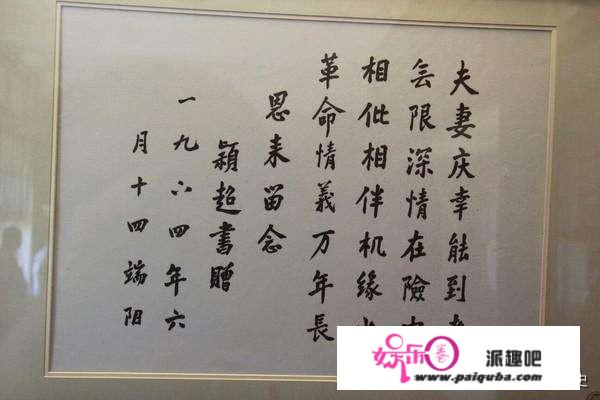 夫妻庆幸能到
无限深情在險
相仳相伴机缘
革命情義万年長
恩来留念
颖超書贈
一九六四年六
月十四端阳
娱乐卷
派趣吧
www.paiquba.com
史